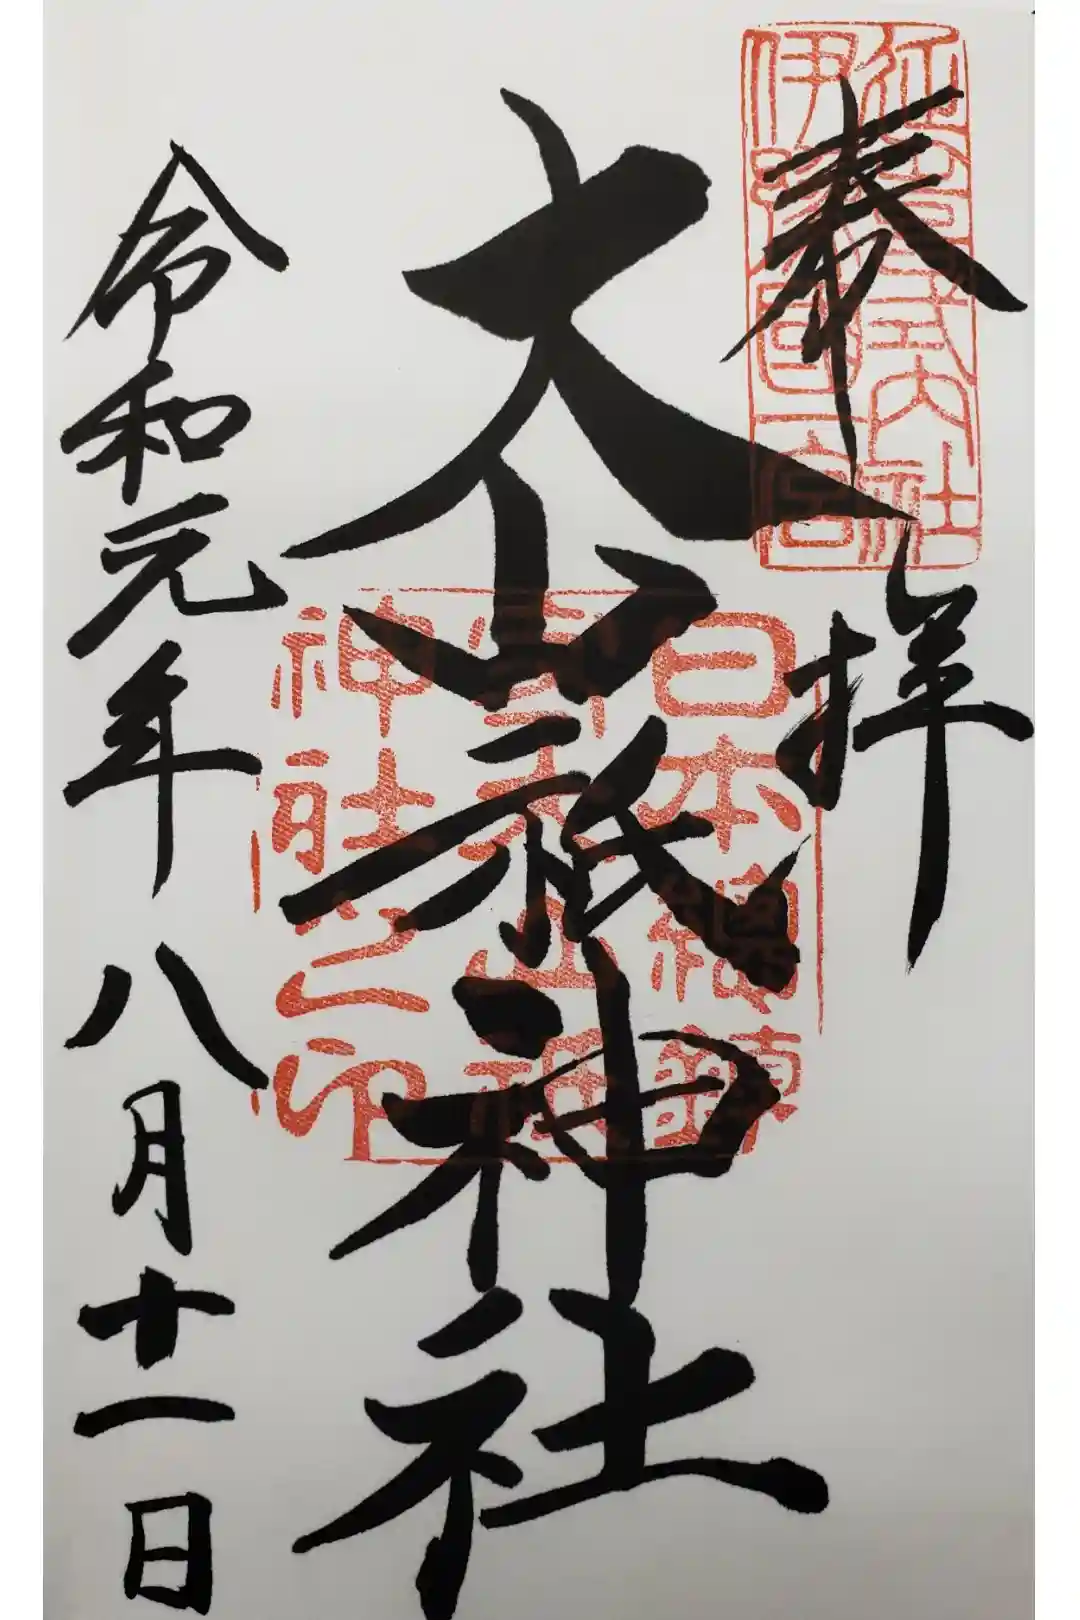 奉拝
延喜式内社
伊豫国一宮
大山祇神社
日本總鎮
神社之印
令和元年八月十一日